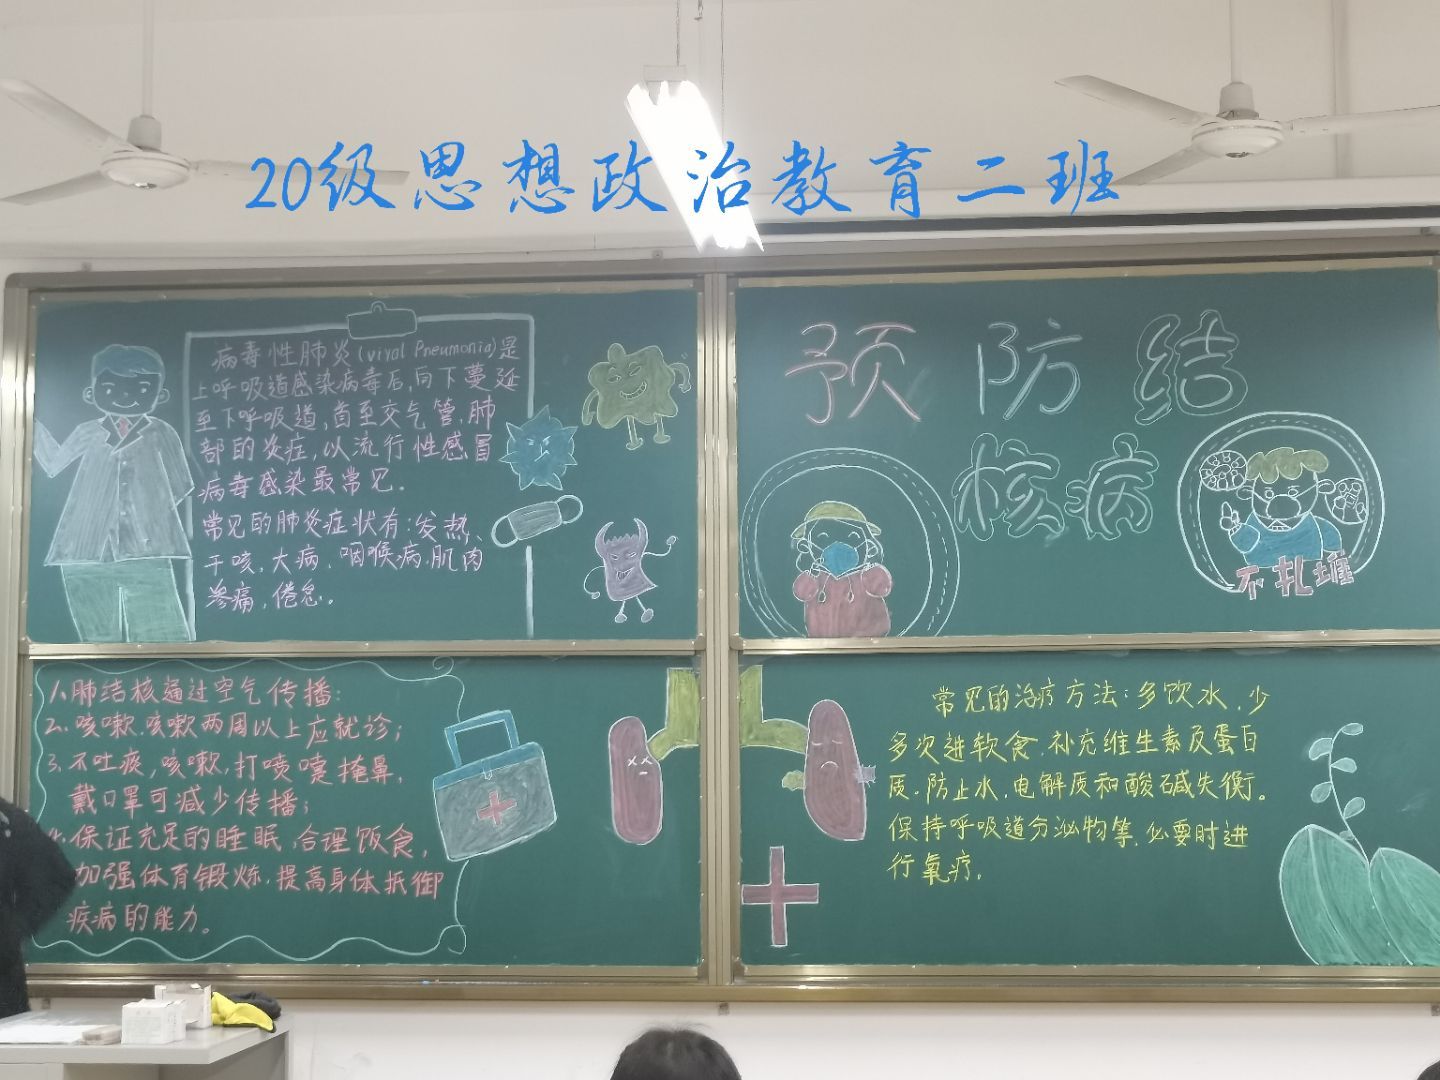 20级思想政治教育二班
病毒性肺炎(viyal Pneumonia)是
上呼吸道感染病毒后,向下蔓延
至下呼吸道,首至交气管,肺
部的炎症,以流行性感冒
病毒感染最常见.
常见的肺炎症状有:发热、
干咳,大病,咽喉病,肌肉
渗痛,倦怠。
预防结
核病
不扎堆
1.肺结核通过空气传播:
2.咳嗽.咳嗽两周以上应就诊;
3.不吐痰,咳嗽,打喷嚏掩鼻,
戴口罩可减少传播;
4.保证充足的睡眠,合理饭食,
加强体育锻炼.提高身体抵御
疾病的能力。
常见的治疗方法:多饮水,少
多次进软食.补充维生素及蛋白
质.防止水,电解质和酸碱失衡。
保持呼吸道分泌物等,必要时进
行氧疗.